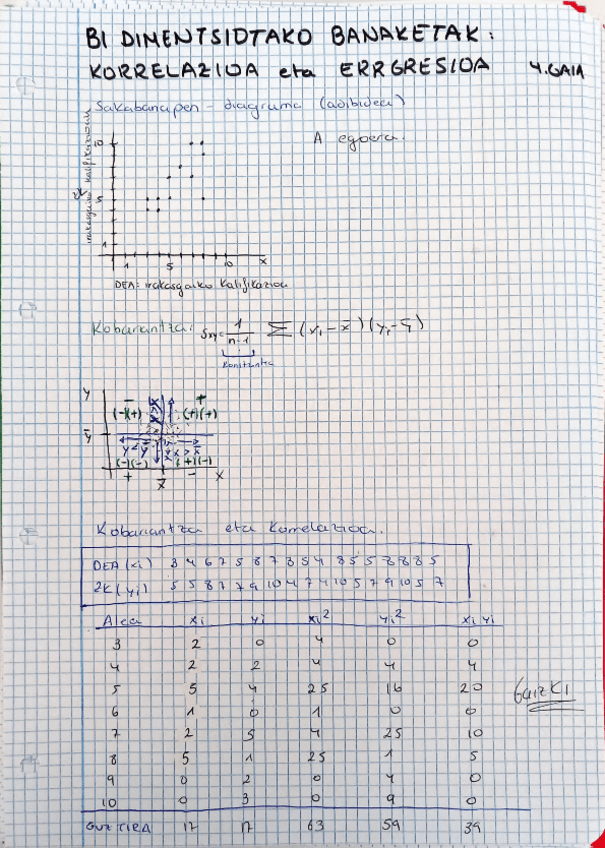 BI DIMENTSIOTAKO BANAKETAK:
KORRELAZIOA eta ERRGRESIOA 4.GAIA
Sakabanapen-diagrama (adibidea)
A egoera.
10
5
1
1 5 10 x
DEA: irakasgaiko Kalifikazioa
Kobariantza: Sxy= 1/n-1 Σ (xi-x̄)(yi-ȳ)
Konstantea
y
- +
(-)(+) (+)(+)
ȳ
(-)(-) (+)(-)
+ x̄ - x
Kobariantza eta Korrelazioa.
DEA (xi) 3 4 6 7 5 8 7 3 5 4 8 5 5 8 8 8 5
ZK (yi) 5 5 8 7 7 9 10 4 7 4 10 5 7 9 10 5 7
Alea xi yi xi² yi² xi yi
3 2 0 4 0 0
4 2 2 4 4 4
5 5 4 25 16 20
6 1 0 1 0 0
7 2 5 4 25 10
8 5 1 25 1 5
9 0 2 0 4 0
10 0 3 0 9 0
GUZTIRA 17 17 63 59 39
GAIZKI